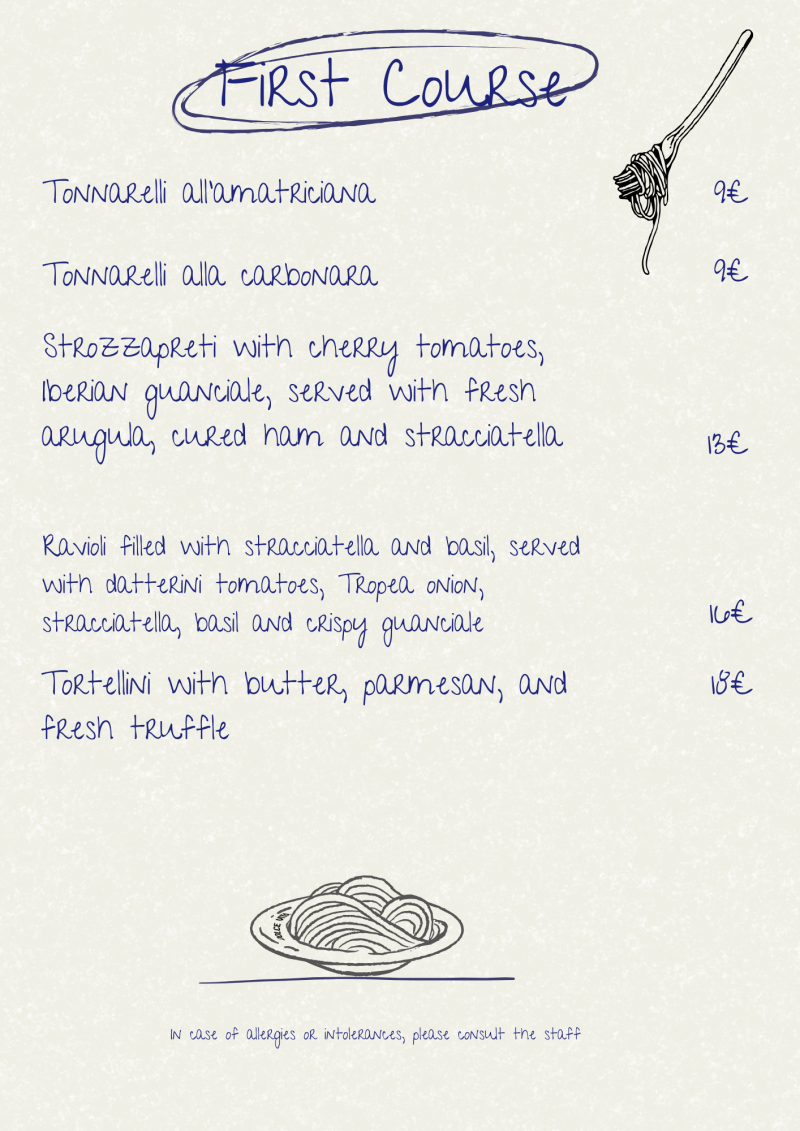 First Course
Tonnarelli all'amatriciana 9€
Tonnarelli alla carbonara 9€
Strozzapreti with cherry tomatoes,
Iberian guanciale, served with fresh
arugula, cured ham and stracciatella 13€
Ravioli filled with stracciatella and basil, served
with datterini tomatoes, Tropea onion,
stracciatella, basil and crispy guanciale 16€
Tortellini with butter, parmesan, and 18€
fresh truffle
DOLCE VITA
In case of allergies or intolerances, please consult the staff